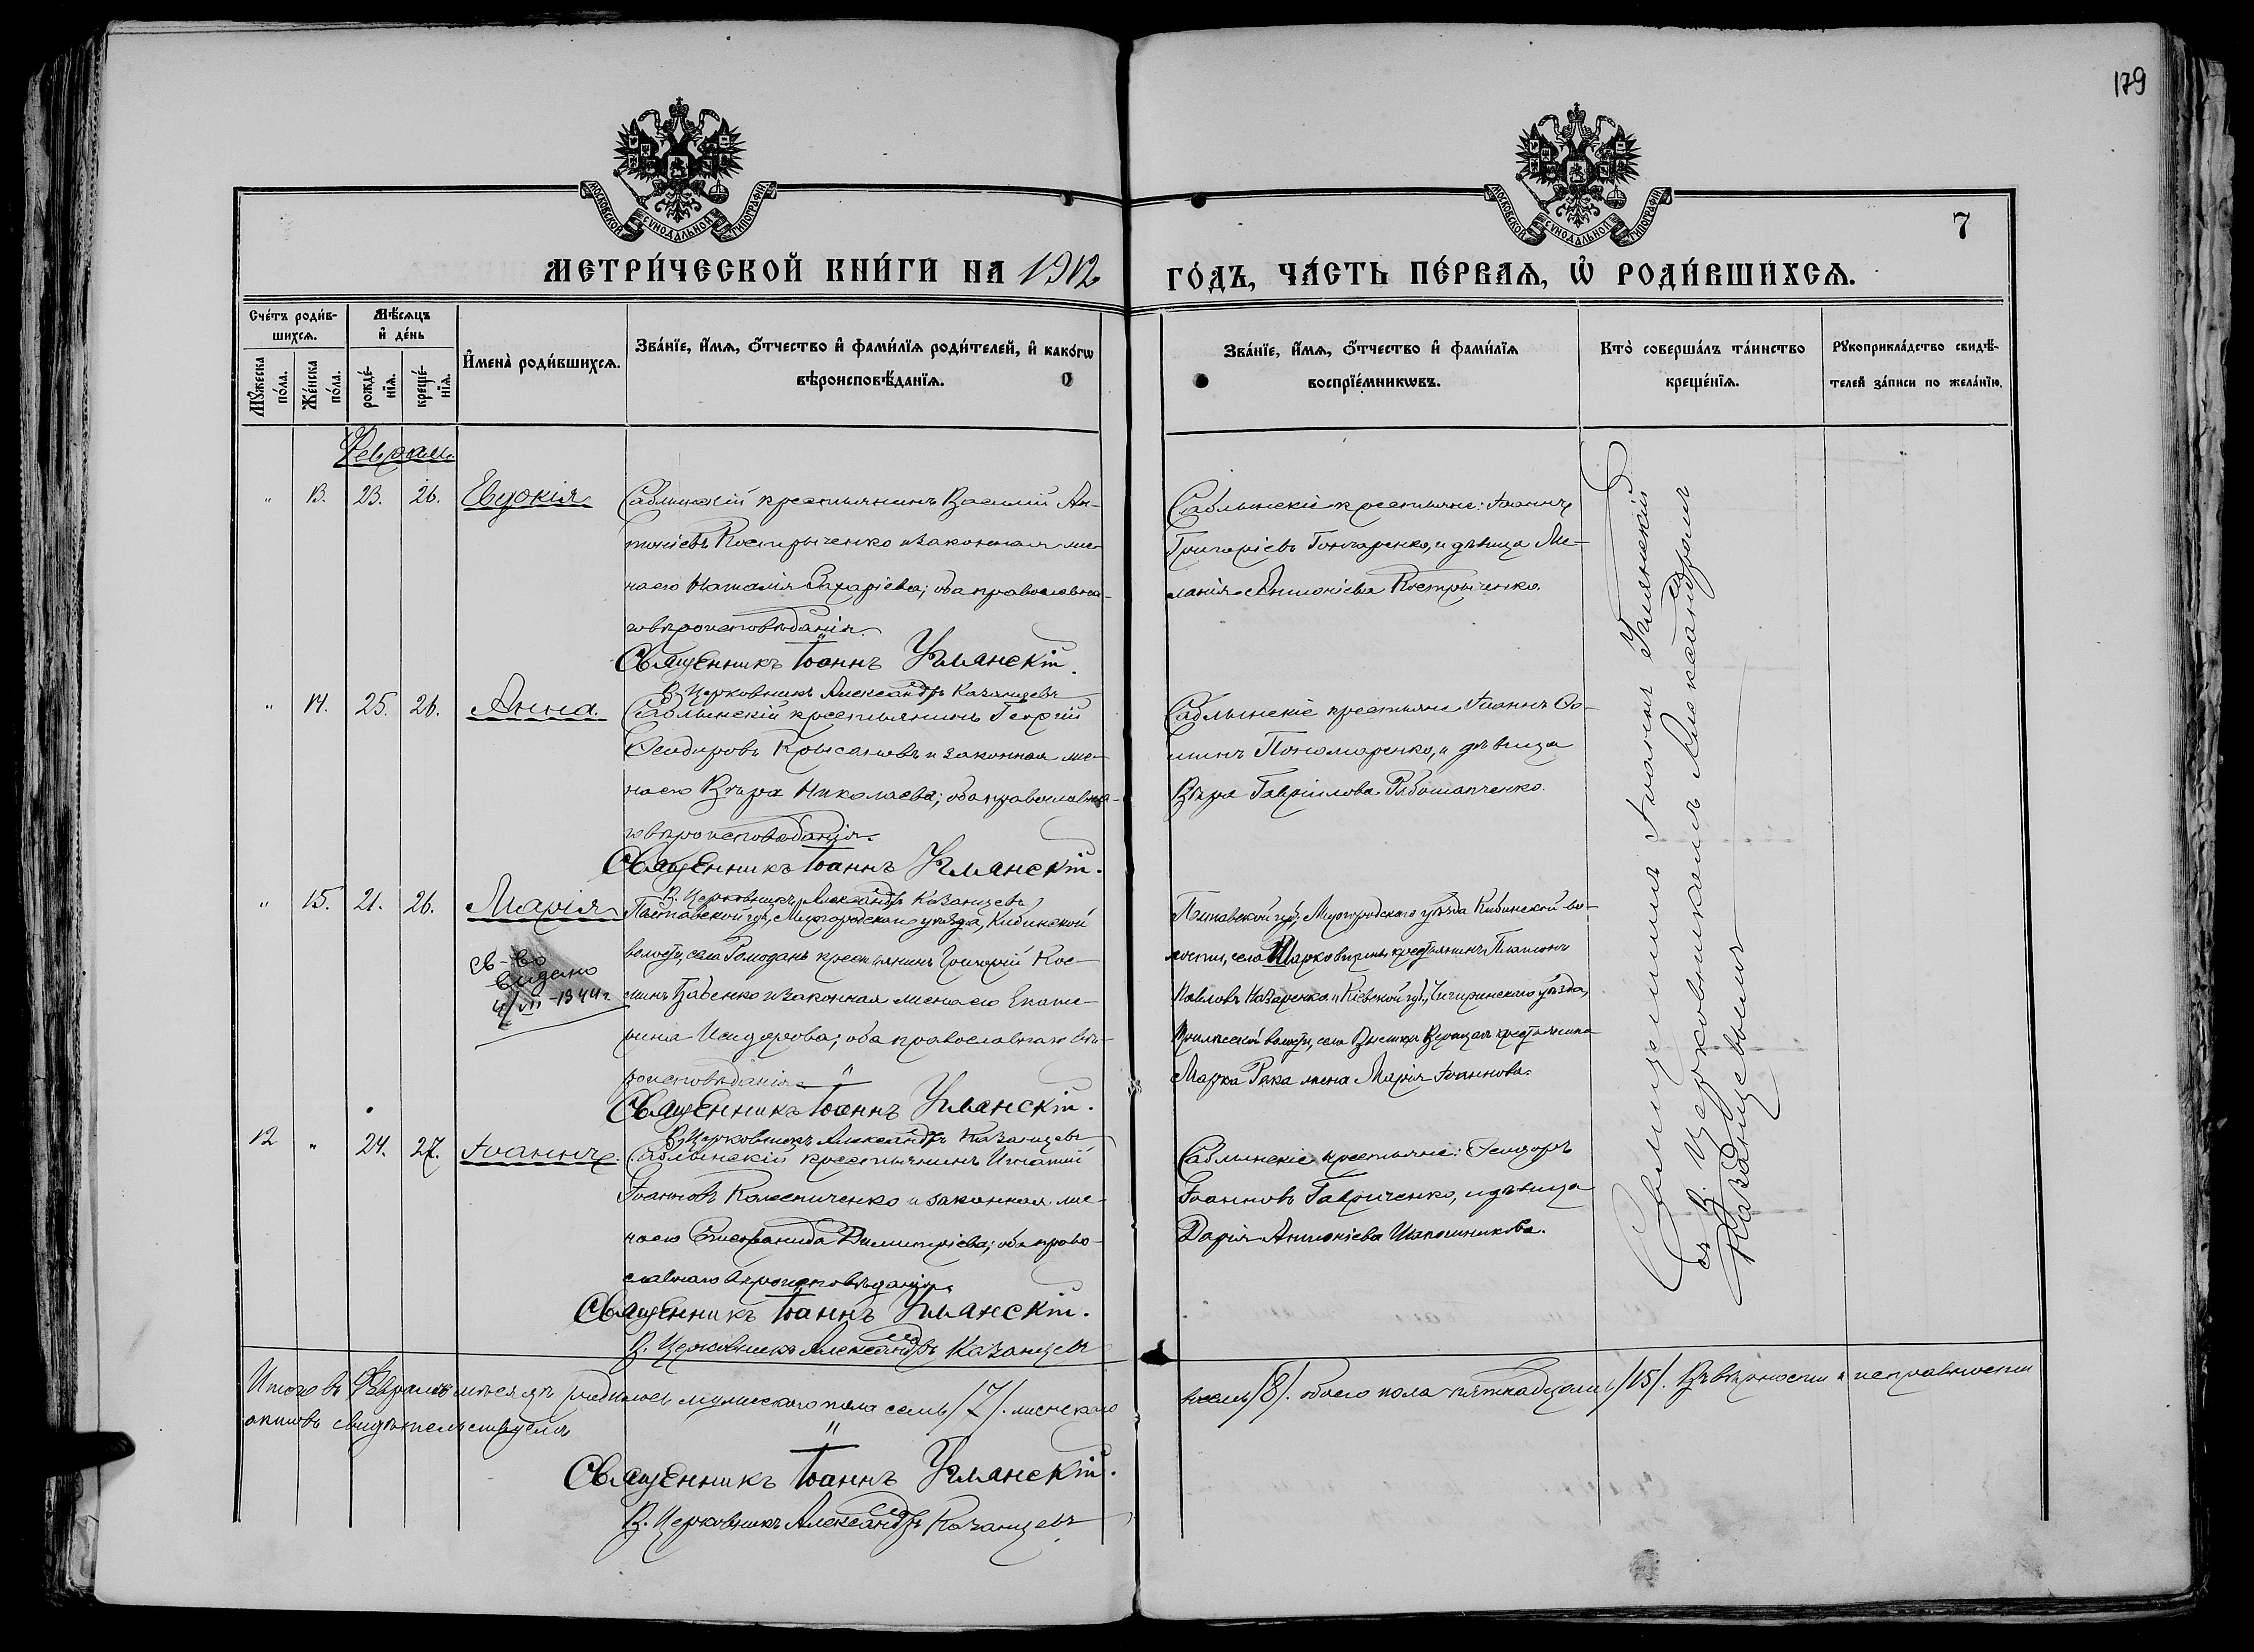 179
МОСКОВСКОЙ СѴНОДАЛЬНОЙ ТИПОГРАФІИ
МОСКОВСКОЙ СѴНОДАЛЬНОЙ ТИПОГРАФІИ
7
МЕТРИ́ЧЕСКОЙ КНИ́ГИ НА 1912
ГО́ДЪ, ЧА́СТЬ ПЕ́РВАѦ, Ѡ РОДИ́ВШИХСѦ.
Сче́тъ роди́в-
шихсѧ.
Мꙋ́жеска
по́ла.
Же́нска
по́ла.
Мѣ́сѧцъ
и҆ де́нь
рожде́-
нїѧ.
креще́-
нїѧ.
И҆мена̀ роди́вшихсѧ.
Зва́нїе, и҆́мѧ, ѻ҆́тчество и҆ фами́лїѧ роди́телей, и҆ како́гѡ
вѣроисповѣ́данїѧ.
Зва́нїе, и҆́мѧ, ѻ҆́тчество и҆ фами́лїѧ
воспрїе́мникѡвъ.
Кто̀ соверша́лъ та́инство
креще́нїѧ.
Рꙋкоприкла́дство свидѣ́-
телей за́писи по жела́нїю.
Февраль
" 13. 23. 26. Евдокія
Саблинскій крестьянинъ Василій Ан-
тоніевъ Костырченко и законная же-
на его Наталія Захаріева; оба православна-
го вѣроисповѣданія.
Священникъ Іоаннъ Уманскій.
В. Церковникъ Александръ Казанцевъ
Саблинскіе крестьяне: Іоаннъ
Григоріевъ Гончаренко, и дѣвица Ме-
ланія Антоніева Костырченко.
" 14. 25. 26. Анна.
Саблинскій крестьянинъ Георгій
Исидоровъ Крысановъ и законная же-
на его Вѣра Николаева; оба православна-
го вѣроисповѣданія.
Священникъ Іоаннъ Уманскій.
В. Церковникъ Александръ Казанцевъ
Саблинскіе крестьяне Іоаннъ Ѳо-
минъ Пономаренко, и дѣвица
Вѣра Гавриилова Рябошапченко.
" 15. 21. 26. Марія
св-во
видано
4/VII-1944г.
Полтавской губ., Миргородскаго уѣзда, Кибинской
волости, села Ромоданъ крестьянинъ Григорій Кос-
минъ Бабенко и законная жена его Екате-
рина Исидорова; оба православнаго вѣ-
роисповѣданія.
Священникъ Іоаннъ Уманскій.
В. Церковникъ Александръ Казанцевъ
Полтавской губ., Миргородскаго уѣзда Кибинской во-
лости, села крестьянинъ Платонъ
Павловъ Назаренко и Кіевской губ., Чигиринскаго уѣзда,
волости, села крестьянина
Марка Рака жена Марія Іоаннова.
12 " 24. 27. Іоаннъ.
Саблинскій крестьянинъ Игнатій
Іоанновъ Колесниченко и законная же-
на его Епистранида Димитріева; оба право-
славнаго вѣроисповѣданія.
Священникъ Іоаннъ Уманскій.
В. Церковникъ Александръ Казанцевъ
Саблинскіе крестьяне: Исидоръ
Іоанновъ Гавриченко, и дѣвица
Дарія Антоніева Шапошникова.
Священникъ Іоаннъ Уманскій
съ В. Церковникомъ Александромъ
Казанцевымъ
Итого въ Февралѣ мѣсяцѣ родилось мужескаго пола семь /7/. женскаго
восемь /8/. обоего пола пятнадцать /15/. Въ вѣрности и исправности
актовъ свидѣтельствуемъ
Священникъ Іоаннъ Уманскій.
В. Церковникъ Александръ Казанцевъ